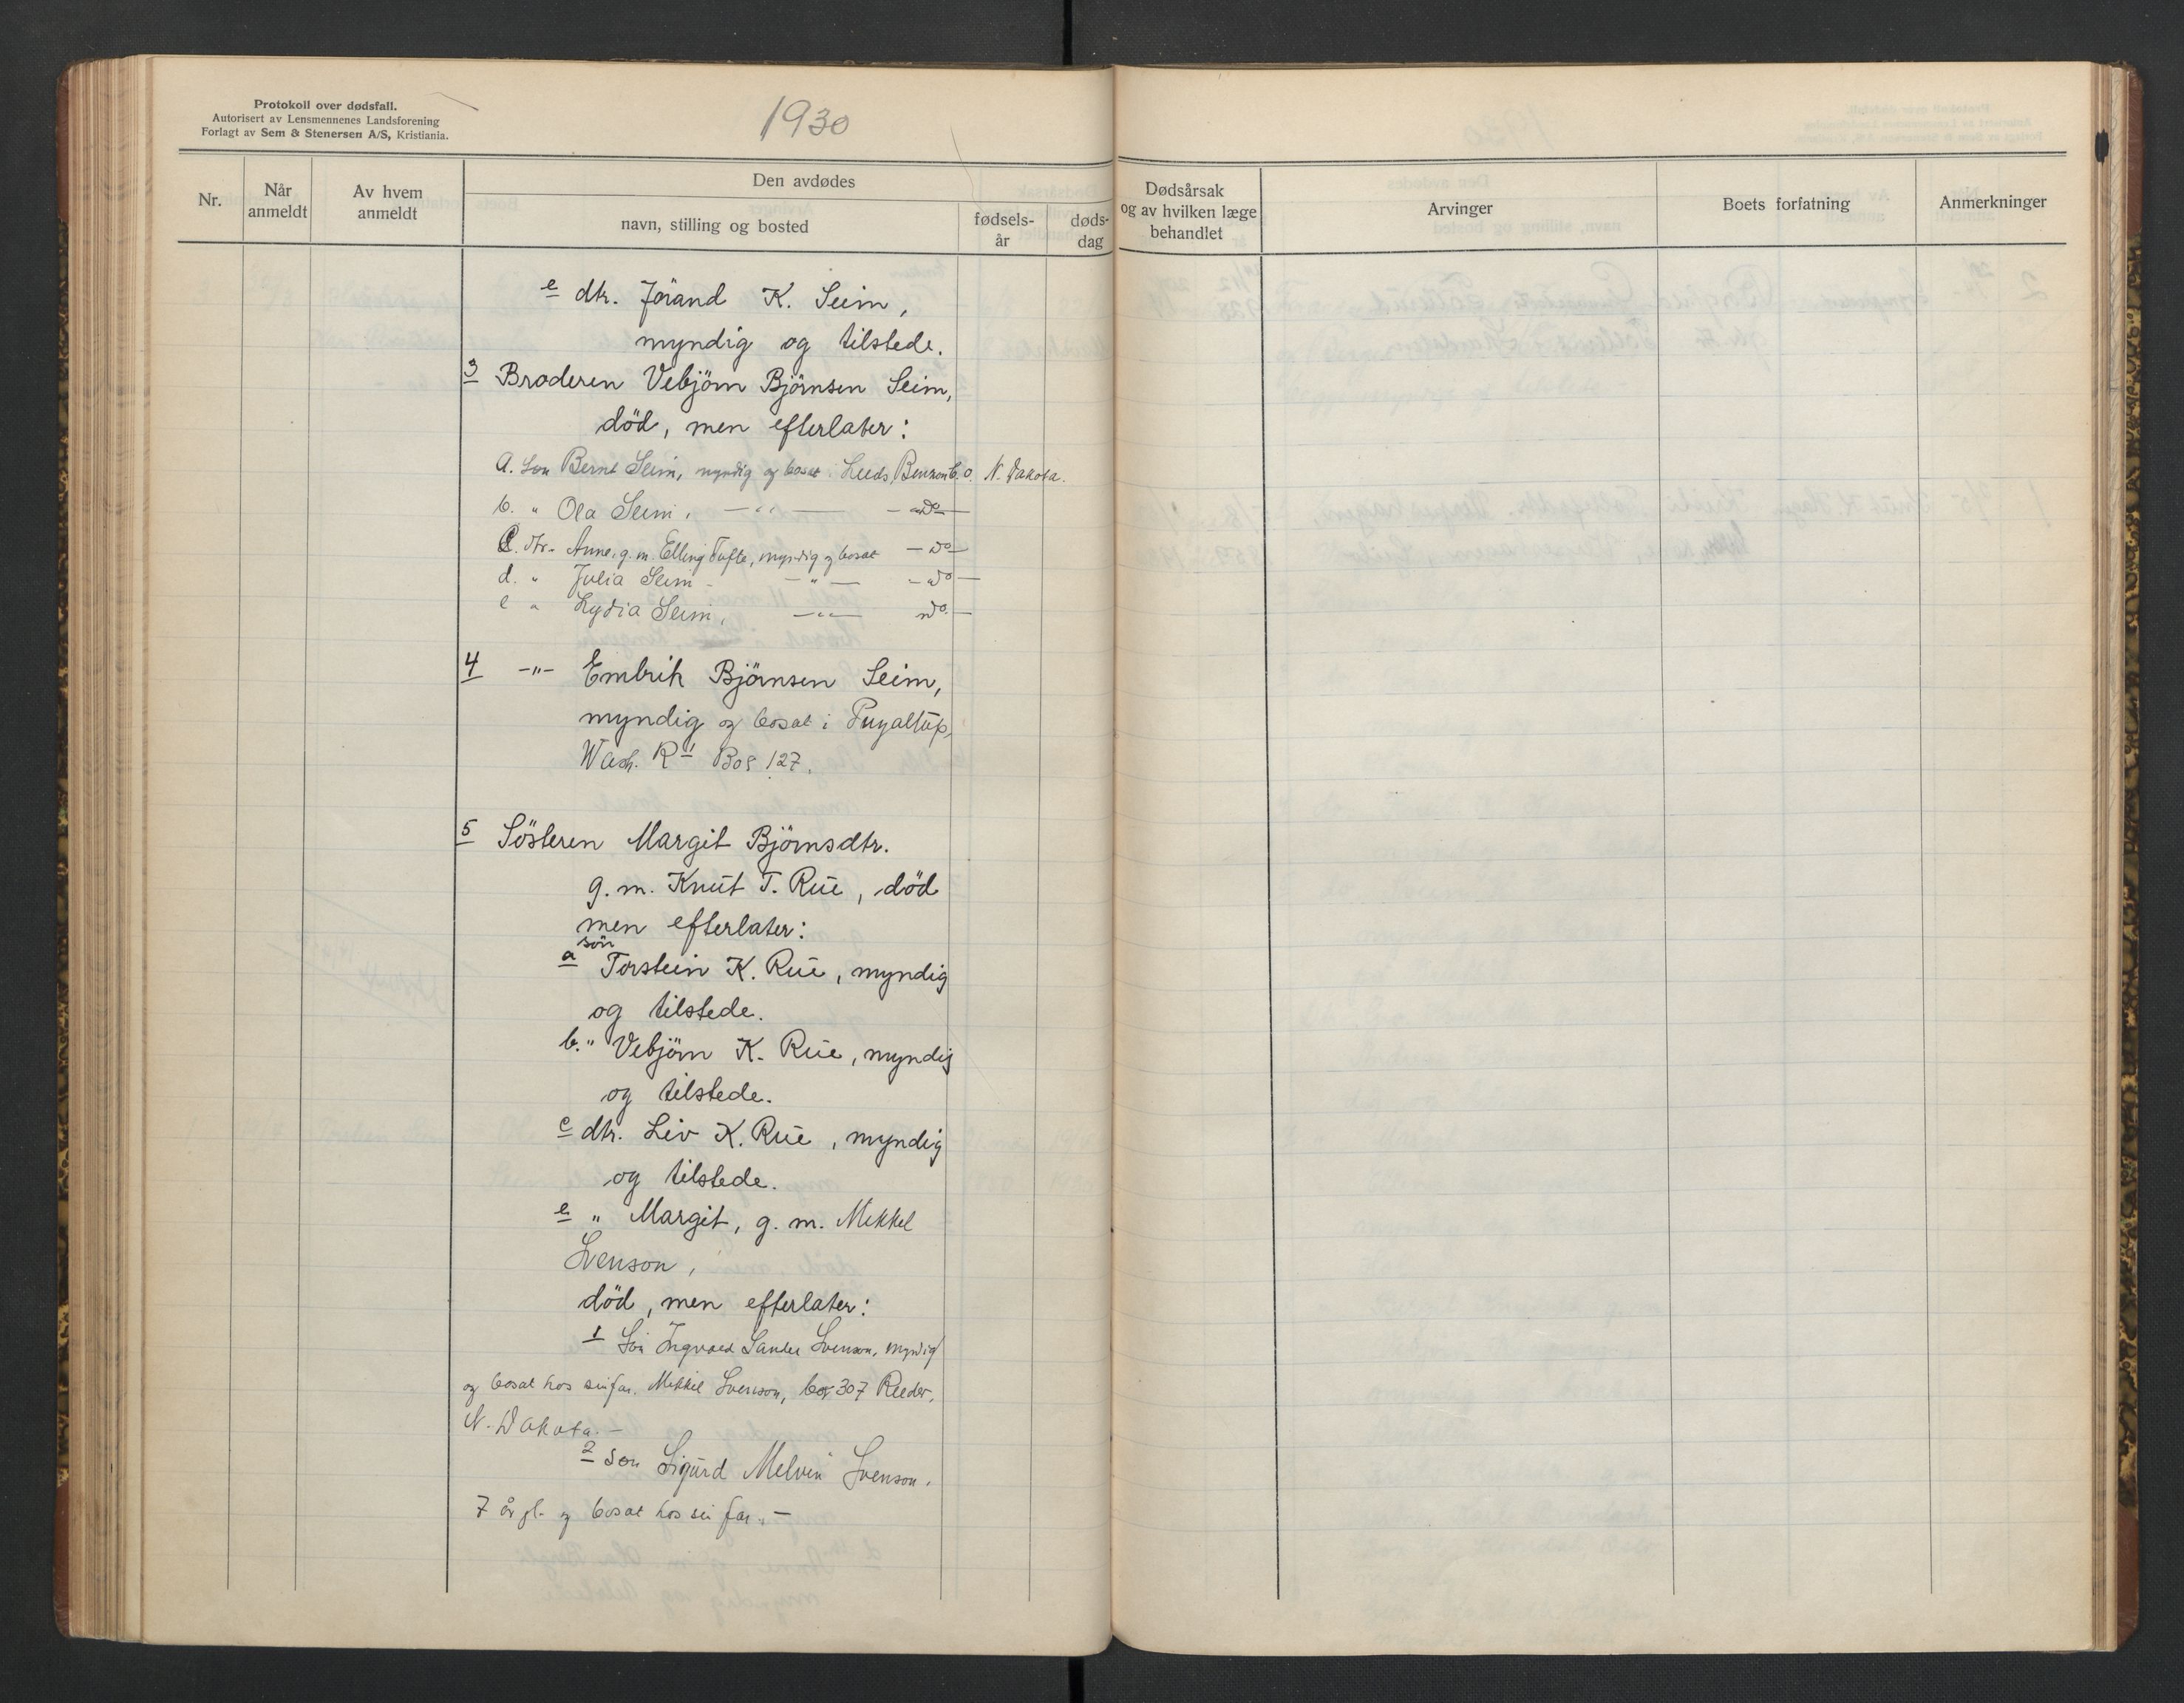 Protokoll over dødsfall.
Autorisert av Lensmennenes Landsforening
Forlagt av Sem & Stenersen A/S, Kristiania.
1930
Nr.
Når anmeldt
Av hvem anmeldt
Den avdødes
navn, stilling og bosted
fødsels-år
døds-dag
Dødsårsak og av hvilken læge behandlet
Arvinger
Boets forfatning
Anmerkninger
e dtr. Jörand K. Seim,
myndig og tilstede.
3 Broderen Vebjörn Björnsen Seim,
död, men efterlater:
a. Sön Bernt Seim, myndig og bosat i Leeds, Benson Co. N. Dakota.
b. " Ola Seim, —"— —do—
c. dtr. Anne, g. m. Elling Tufte, myndig og bosat —do—
d. " Julia Seim —"— —do—
e " Lydia Seim, —"— do.—
4 -"- Embrik Björnsen Seim,
myndig og bosat i Puyallup,
Wash. R 1 Box 127.
5 Sösteren Margit Björnsdtr.
g. m. Knut T. Rue, död
men efterlater:
a sön Torstein K. Rue, myndig
og tilstede.
b. " Vebjörn K. Rue, myndig
og tilstede.
c dtr. Liv K. Rue, myndig
og tilstede.
e " Margit, g. m. Mikkel
Svenson,
död, men efterlater:
1 Sön Ingvald Sander Svenson, myndig
og bosat hos sin far, Mikkel Svenson, box 307 Reeder,
N. Dakota. —
2 Sön Sigurd Melvin Svenson,
7 år gl. og bosat hos sin far. —